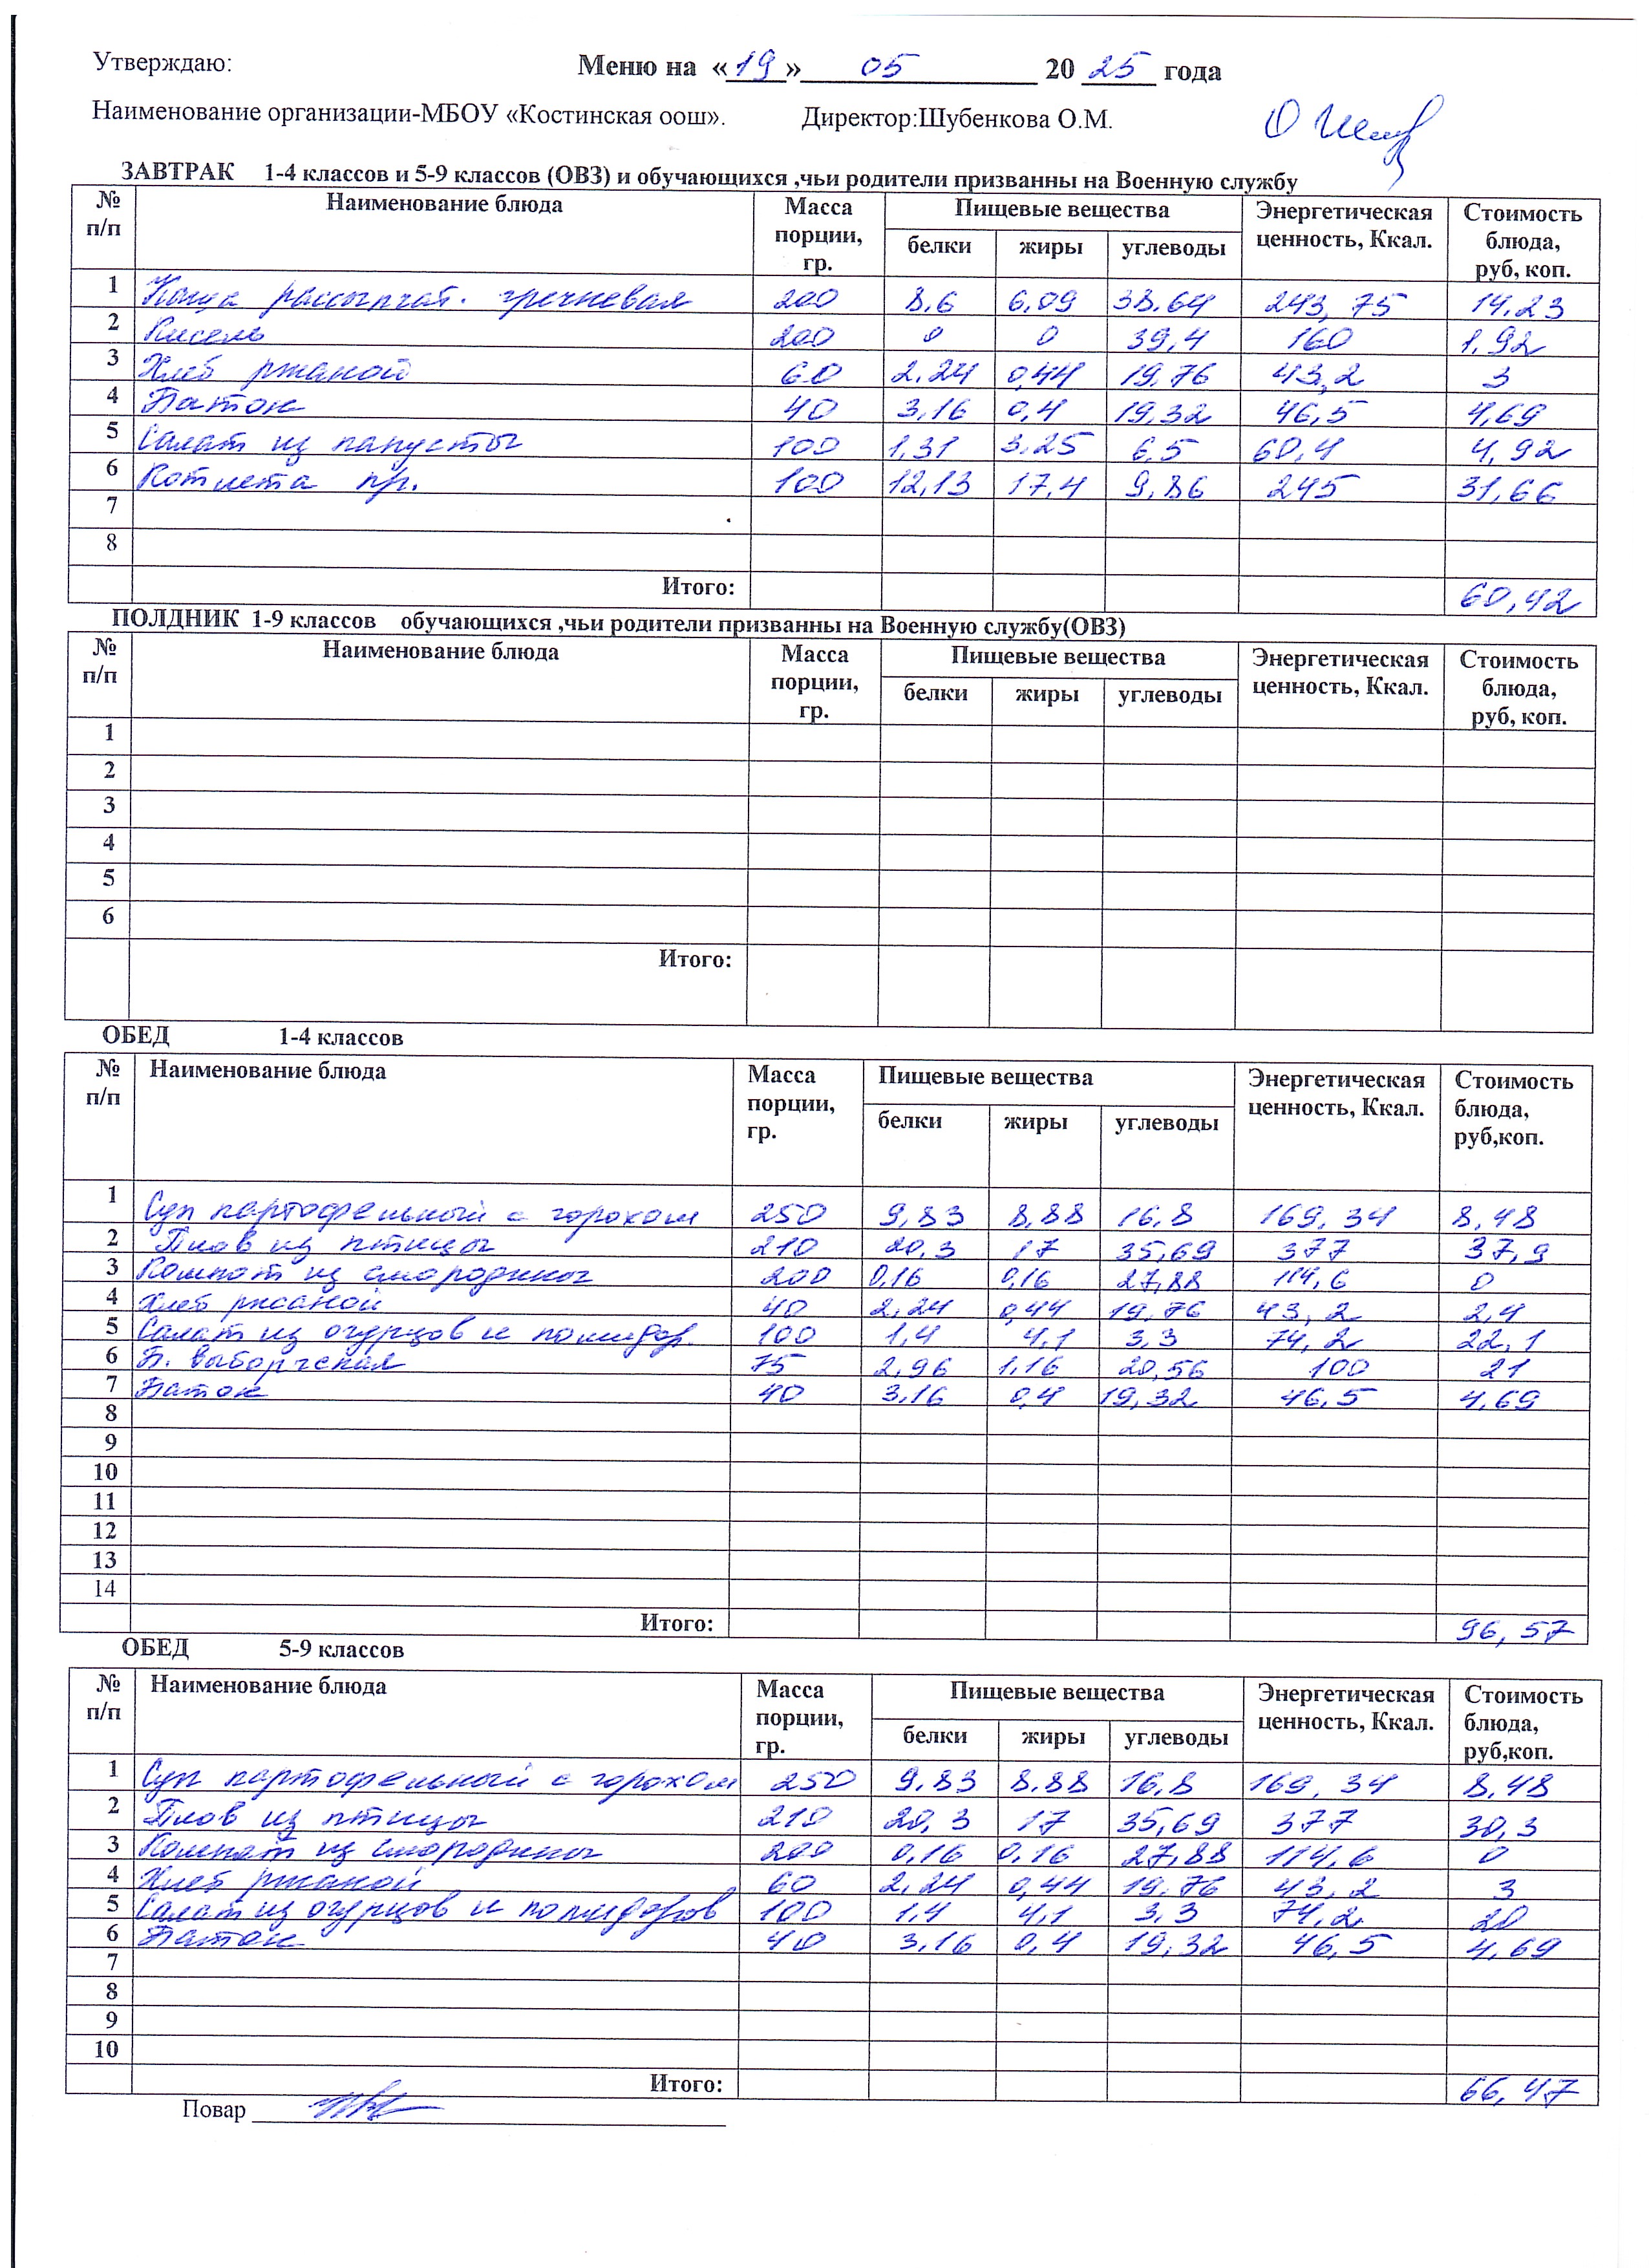 Утверждаю: Меню на «19» 05 20 25 года
Наименование организации-МБОУ «Костинская оош». Директор:Шубенкова О.М.
ЗАВТРАК 1-4 классов и 5-9 классов (ОВЗ) и обучающихся ,чьи родители призванны на Военную службу
№ п/п Наименование блюда Масса порции, гр. Пищевые вещества Энергетическая ценность, Ккал. Стоимость блюда, руб, коп.
белки жиры углеводы
1 Каша рассыпчат. гречневая 200 8,6 6,09 38.64 243,75 14.23
2 Кисель 200 0 0 39,4 160 1,92
3 Хлеб ржаной 60 2.24 0,44 19.76 43,2 3
4 Батон 40 3,16 0,4 19,32 46,5 4,69
5 Салат из капусты 100 1,31 3.25 6,5 60,4 4,92
6 Котлета пр. 100 12,13 17,4 9,86 245 31,66
7
8
Итого: 60,42
ПОЛДНИК 1-9 классов обучающихся ,чьи родители призванны на Военную службу(ОВЗ)
№ п/п Наименование блюда Масса порции, гр. Пищевые вещества Энергетическая ценность, Ккал. Стоимость блюда, руб, коп.
белки жиры углеводы
1
2
3
4
5
6
Итого:
ОБЕД 1-4 классов
№ п/п Наименование блюда Масса порции, гр. Пищевые вещества Энергетическая ценность, Ккал. Стоимость блюда, руб,коп.
белки жиры углеводы
1 Суп картофельный с горохом 250 9,83 8,88 16,8 169,34 8,48
2 Плов из птицы 210 20,3 17 35,69 377 37,9
3 Компот из смородины 200 0,16 0,16 27,88 114,6 0
4 Хлеб ржаной 40 2,24 0,44 19,76 43,2 2,4
5 Салат из огурцов и помидор. 100 1,4 4,1 3,3 74,2 22,1
6 Б. выборгская 75 2,96 1,16 20,56 100 21
7 Батон 40 3,16 0,4 19,32 46,5 4,69
8
9
10
11
12
13
14
Итого: 96,57
ОБЕД 5-9 классов
№ п/п Наименование блюда Масса порции, гр. Пищевые вещества Энергетическая ценность, Ккал. Стоимость блюда, руб,коп.
белки жиры углеводы
1 Суп картофельный с горохом 250 9,83 8,88 16,8 169,34 8,48
2 Плов из птицы 210 20,3 17 35,69 377 30,3
3 Компот из смородины 200 0,16 0,16 27,88 114,6 0
4 Хлеб ржаной 60 2,24 0,44 19,76 43,2 3
5 Салат из огурцов и помидоров 100 1,4 4,1 3,3 74,2 20
6 Батон 40 3,16 0,4 19,32 46,5 4,69
7
8
9
10
Итого: 66,47
Повар